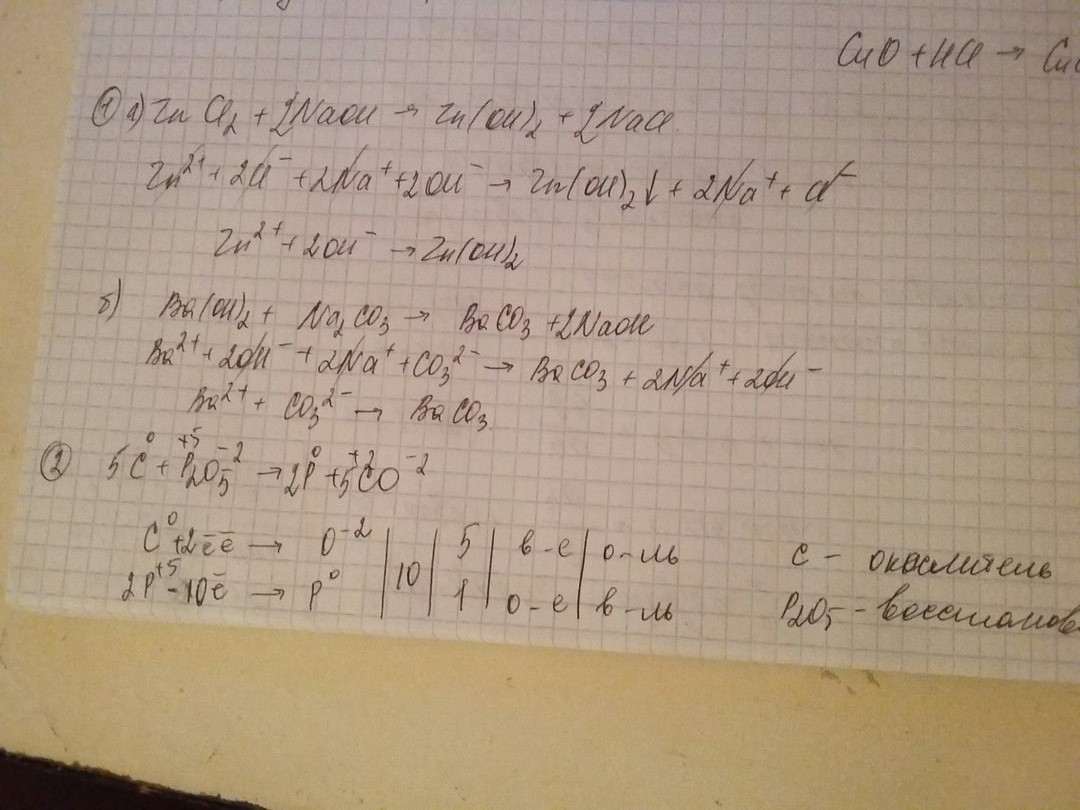 CuO + HCl → Cu
① а) ZnCl₂ + 2NaOH → Zn(OH)₂ + 2NaCl
Zn²⁺ + 2Cl⁻ + 2Na⁺ + 2OH⁻ → Zn(OH)₂↓ + 2Na⁺ + Cl⁻
Zn²⁺ + 2OH⁻ → Zn(OH)₂
б) Ba(OH)₂ + Na₂CO₃ → BaCO₃ + 2NaOH
Ba²⁺ + 2OH⁻ + 2Na⁺ + CO₃²⁻ → BaCO₃ + 2Na⁺ + 2OH⁻
Ba²⁺ + CO₃²⁻ → BaCO₃
② 5C⁰ + P₂⁺⁵O₅⁻² → 2P⁰ + 5C⁺²O⁻²
C⁰ + 2ēē → O⁻² | 10 | 5 | в-е | о-ль С - окислитель
2P⁺⁵ - 10ē → P⁰ | 1 | о-е | в-ль P₂O₅ - восстанов